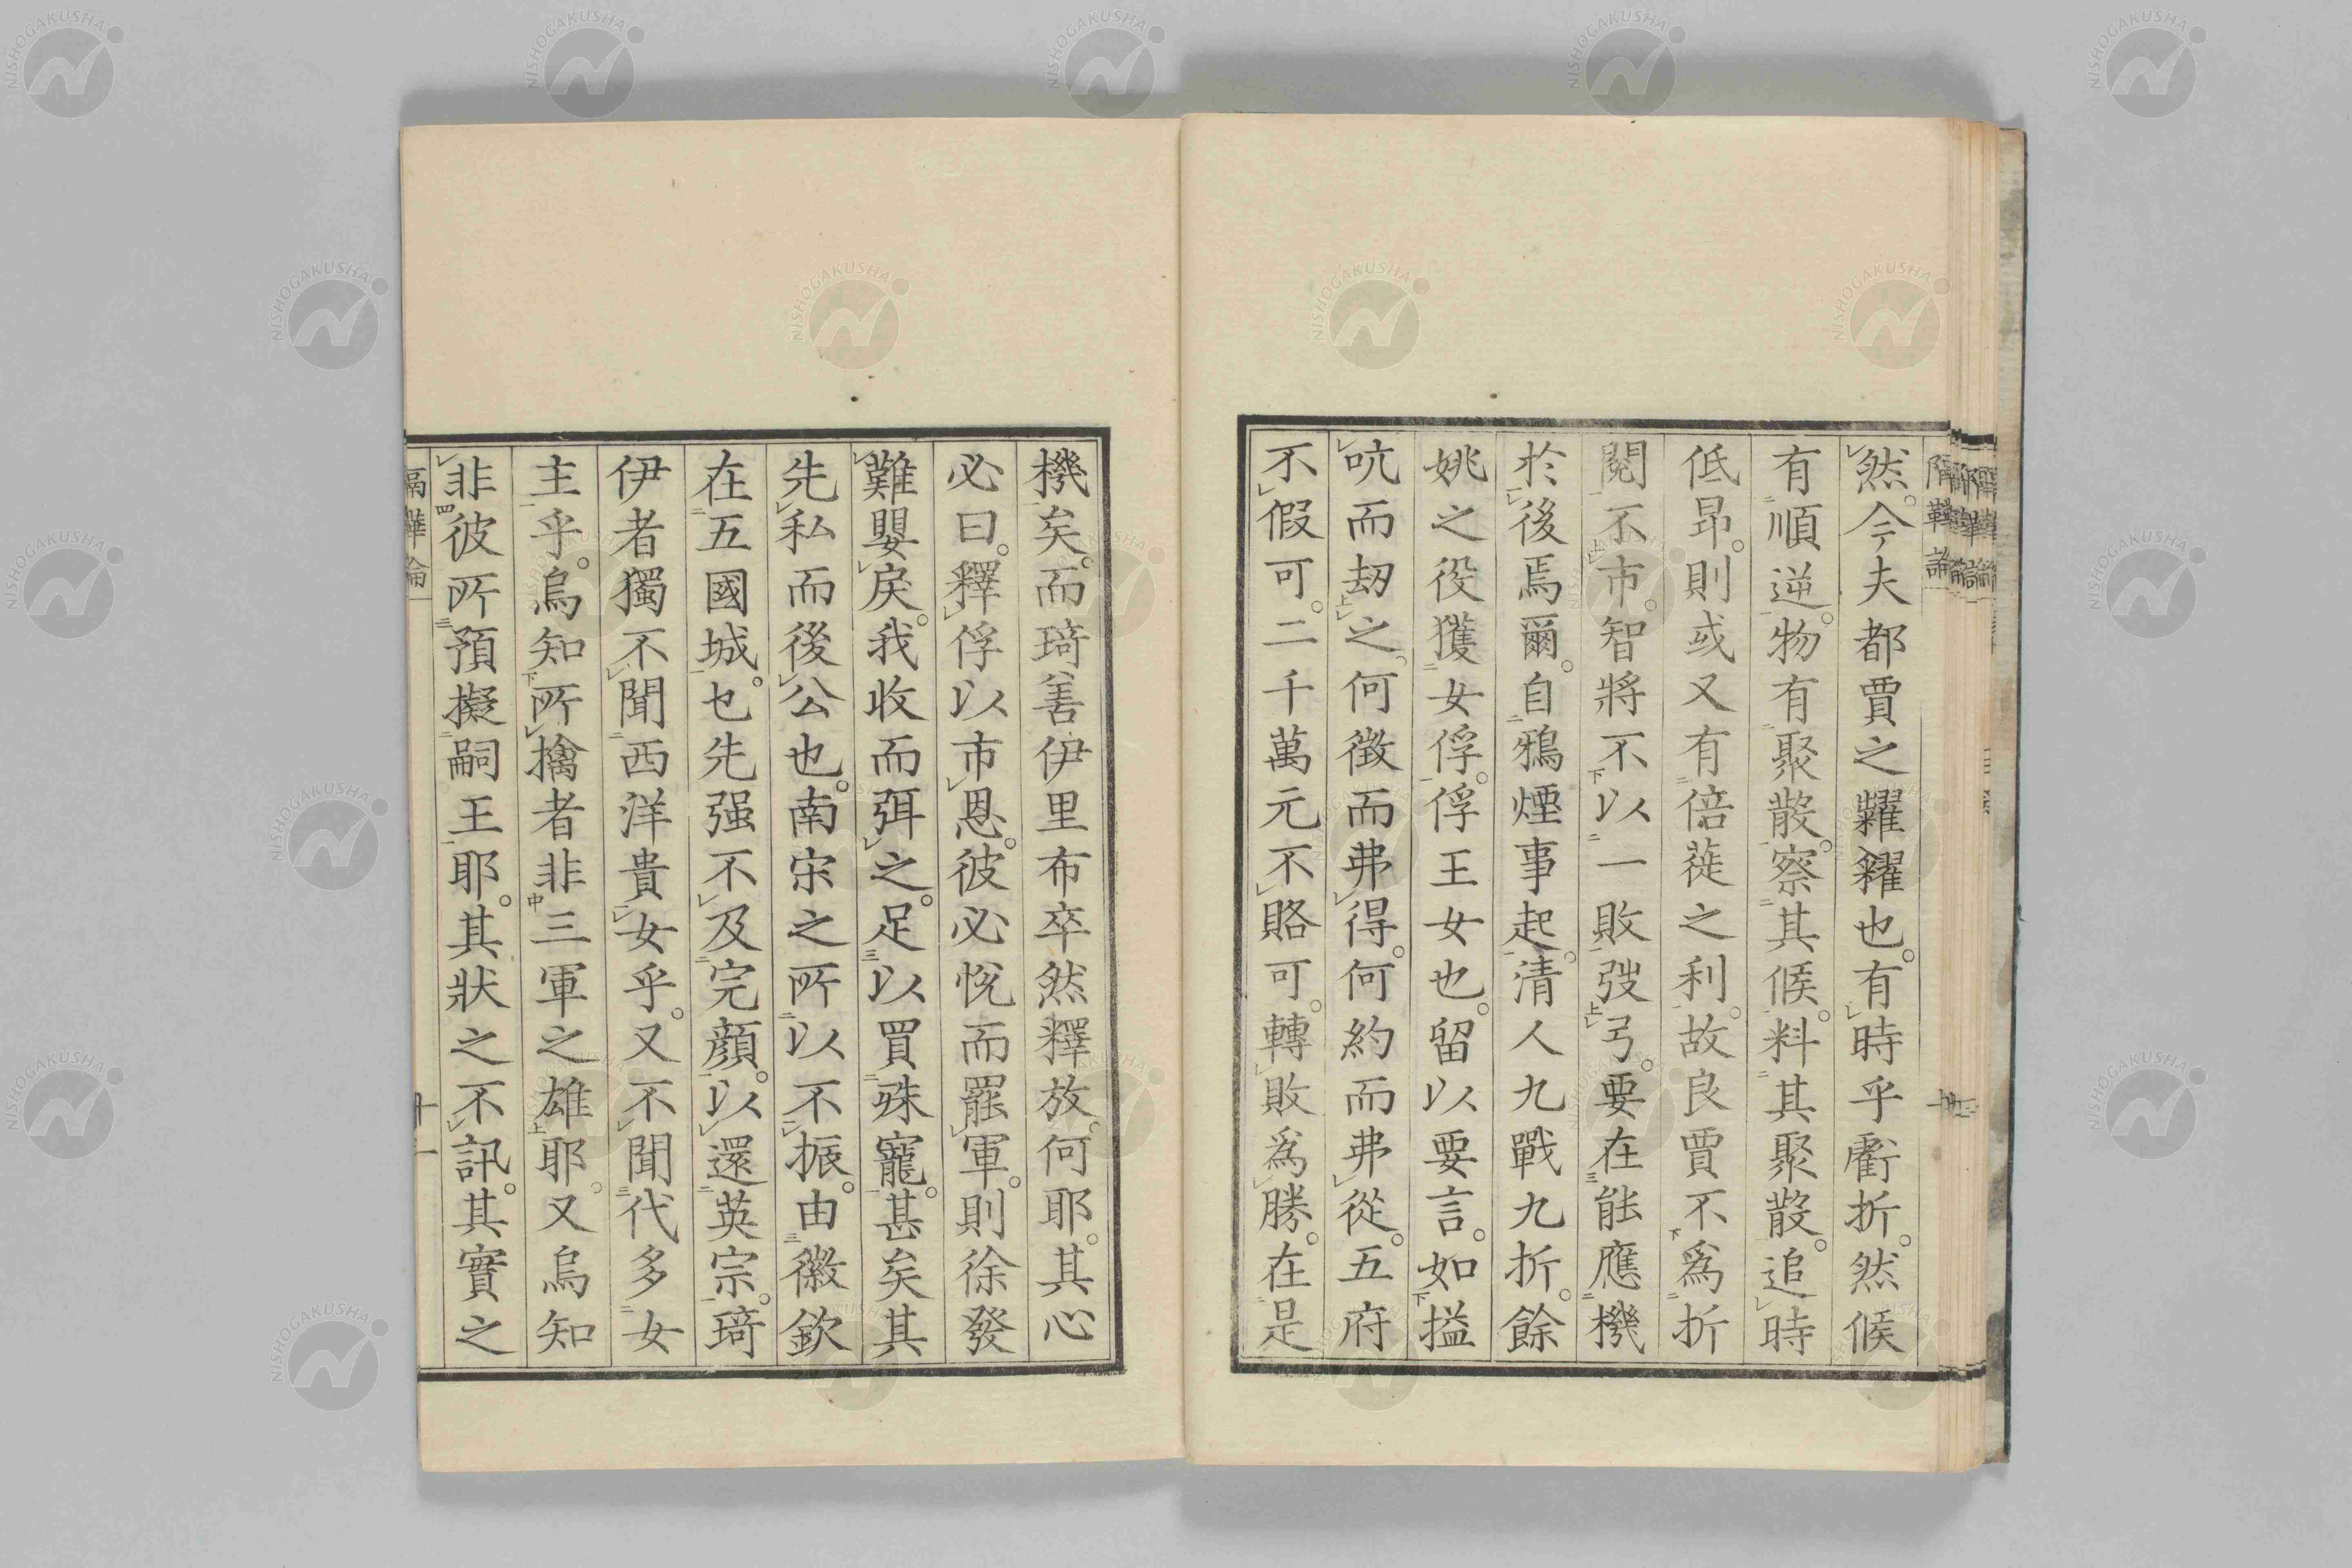 然。今夫都賈之糶糴也。有時乎虧折。然候
有順逆。物有聚散。察其候。料其聚散。追時
低昂。則或又有倍蓰之利。故良賈不爲折
閱不市。智將不以一敗弢弓。要在能應機
於後焉爾。自鴉煙事起。清人九戰九折。餘
姚之役獲女俘。俘王女也。留以要言。如搤
吭而劫之。何徵而弗得。何約而弗從。五府
不假可。二千萬元不賂可。轉敗爲勝。在是
機矣。而琦善伊里布卒然釋放。何耶。其心
必曰。釋俘以市恩。彼必悅而罷軍。則徐發
難嬰戾。我收而弭之。足以買殊寵。甚矣其
先私而後公也。南宋之所以不振。由徽欽
在五國城。也先强不及完顏。以還英宗。琦
伊者獨不聞西洋貴女乎。又不聞代多女
主乎。烏知所擒者非三軍之雄耶。又烏知
非彼所預擬嗣王耶。其狀之不訊。其實之
隔鞾論
十一
NISHOGAKUSHA